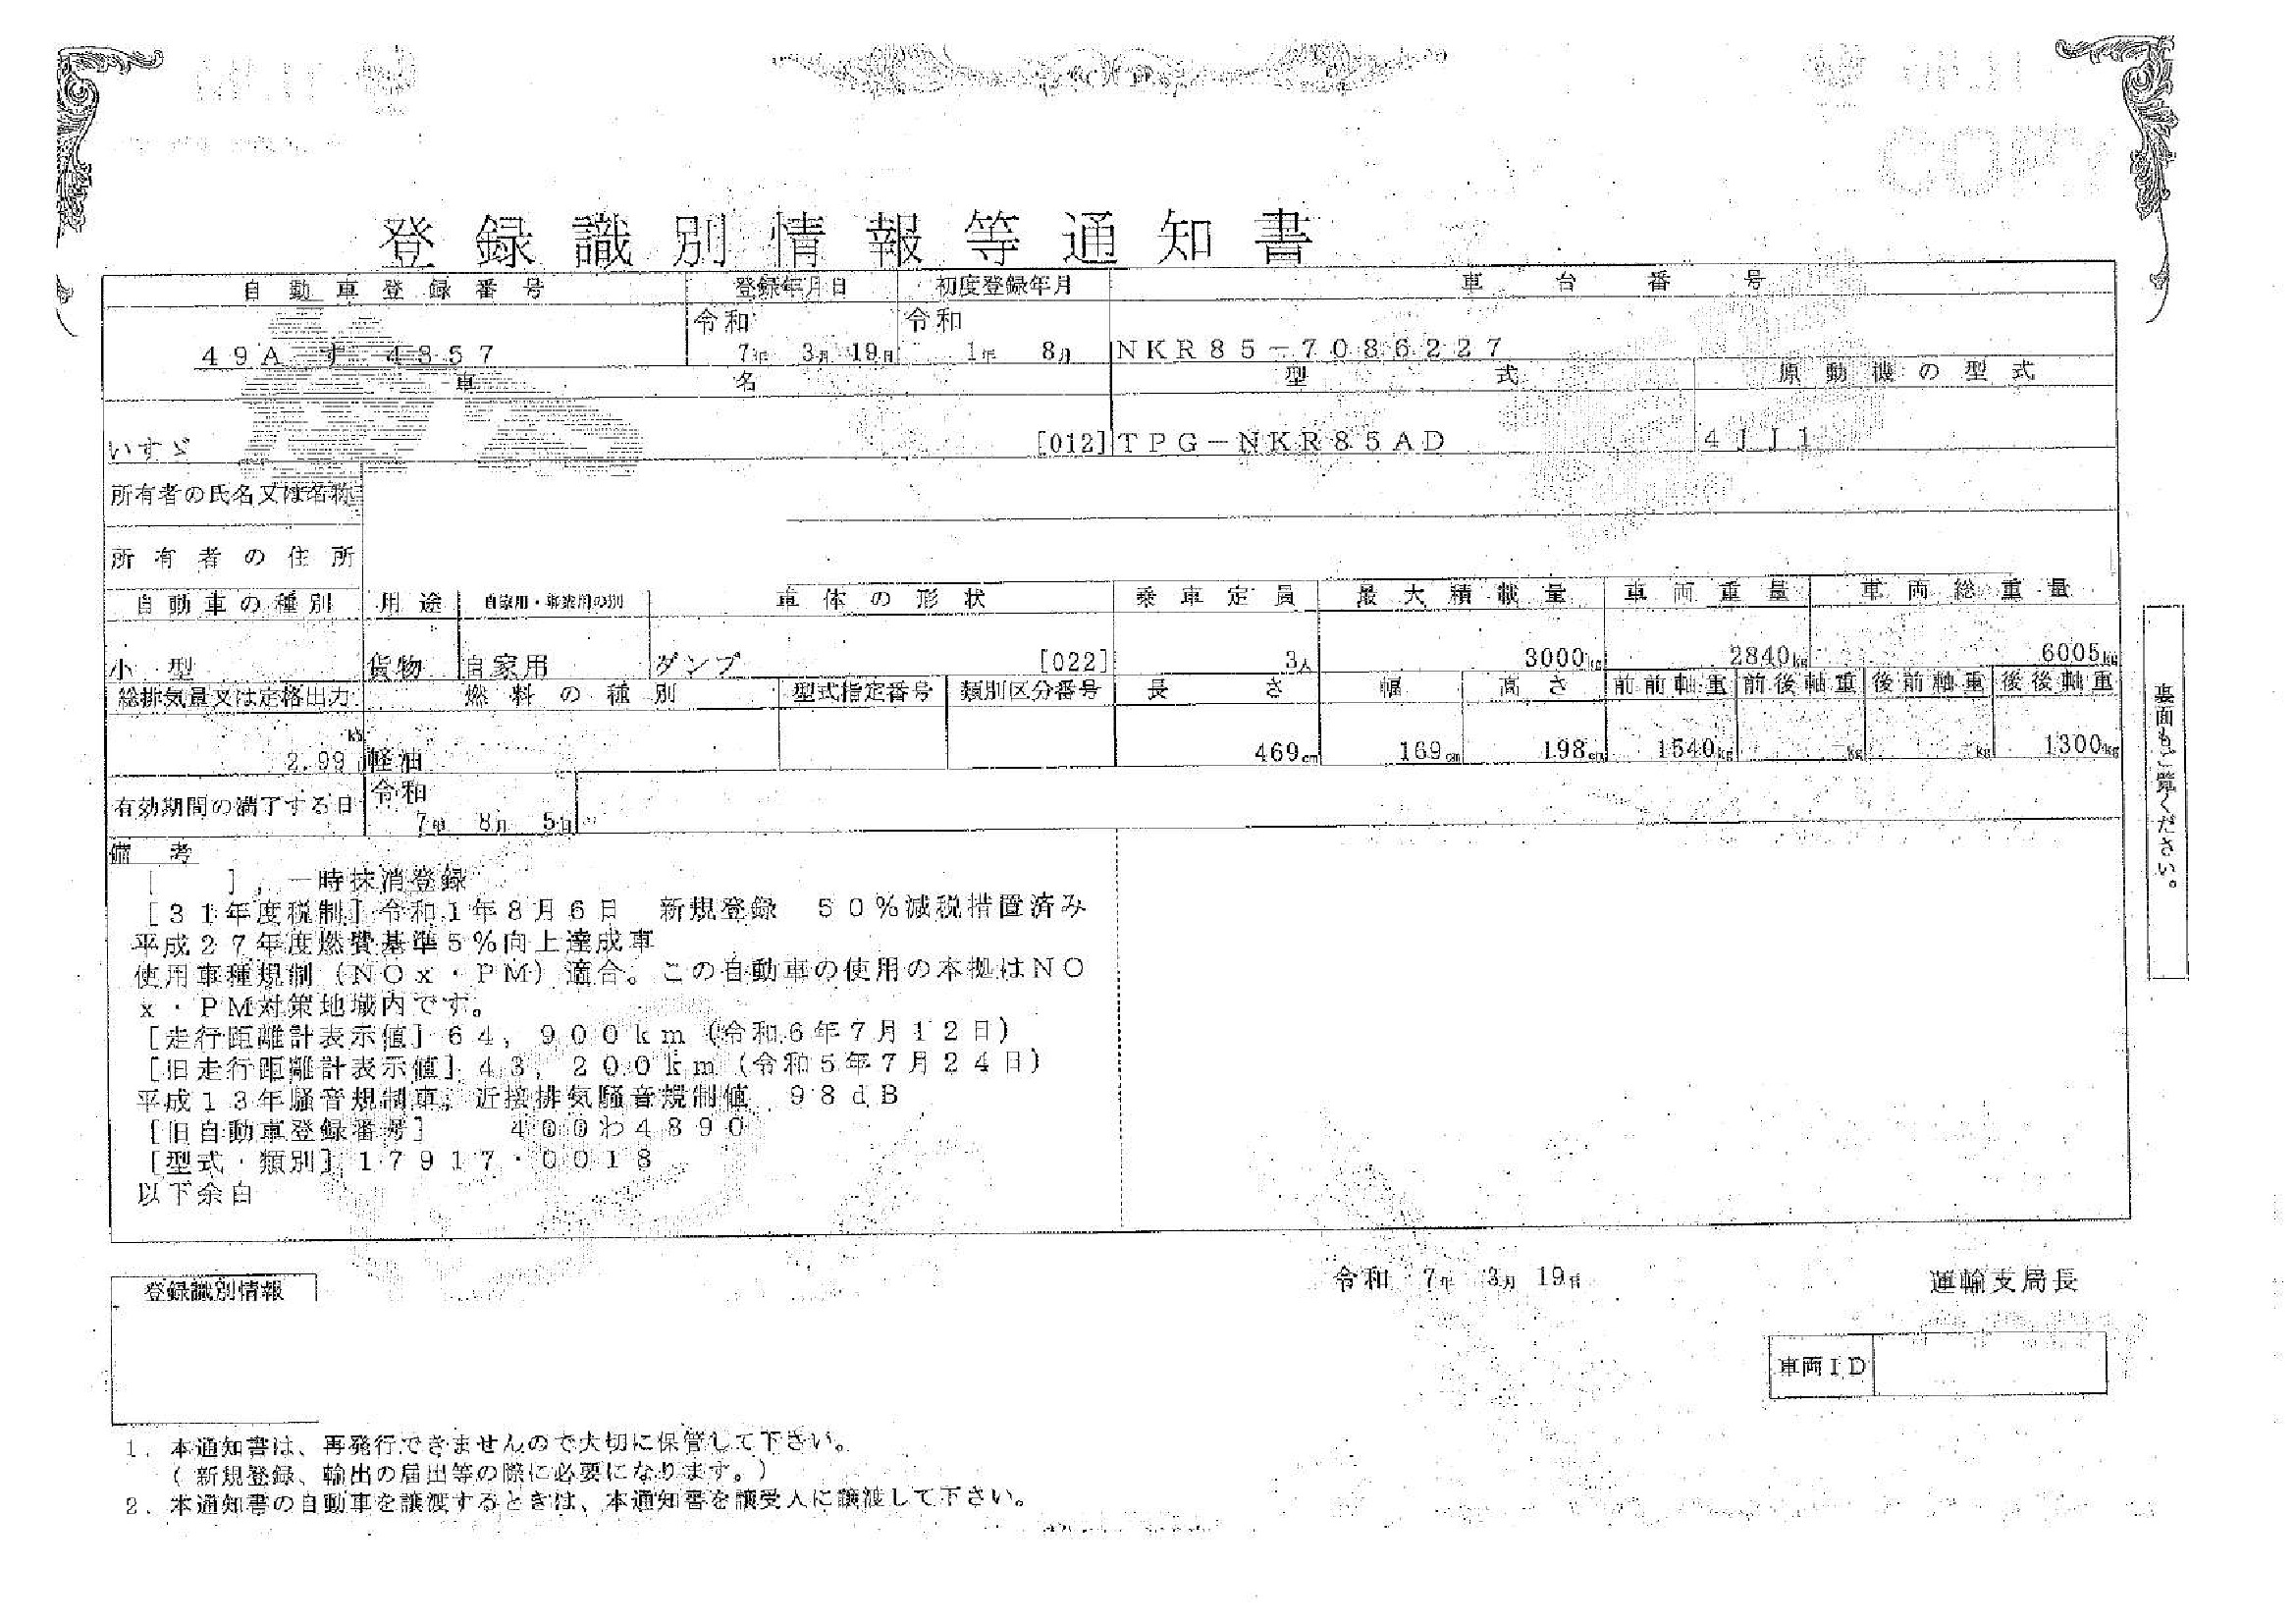 登録識別情報等通知書
自動車登録番号 登録年月日 初度登録年月 車台番号
令和 令和
49A す 4357 7年 3月 19日 1年 8月 NKR85-7086227
車名 型式 原動機の型式
いすゞ [012] TPG-NKR85AD 4JJ1
所有者の氏名又は名称
所有者の住所
自動車の種別 用途 自家用・事業用の別 車体の形状 乗車定員 最大積載量 車両重量 車両総重量
小型 貨物 自家用 ダンプ [022] 3人 3000kg 2840kg 6005kg
総排気量又は定格出力 燃料の種別 型式指定番号 類別区分番号 長さ 幅 高さ 前前軸重 前後軸重 後前軸重 後後軸重
2.99 軽油 469cm 169cm 198cm 1540kg kg kg 1300kg
有効期間の満了する日 令和
7年 8月 5日
備考
[ ],一時抹消登録
[31年度税制]令和1年8月6日 新規登録 50%減税措置済み
平成27年度燃費基準5%向上達成車
使用車種規制(NOx・PM)適合。この自動車の使用の本拠はNO
x・PM対策地域内です。
[走行距離計表示値]64,900km(令和6年7月12日)
[旧走行距離計表示値]43,200km(令和5年7月24日)
平成13年騒音規制車、近接排気騒音規制値 98dB
[旧自動車登録番号] 400わ4890
[型式・類別]17917・0018
以下余白
裏面もご覧ください。
登録識別情報
令和 7年 3月 19日 運輸支局長
車両ID
1. 本通知書は、再発行できませんので大切に保管して下さい。
(新規登録、輸出の届出等の際に必要になります。)
2. 本通知書の自動車を譲渡するときは、本通知書を譲受人に譲渡して下さい。
COPY